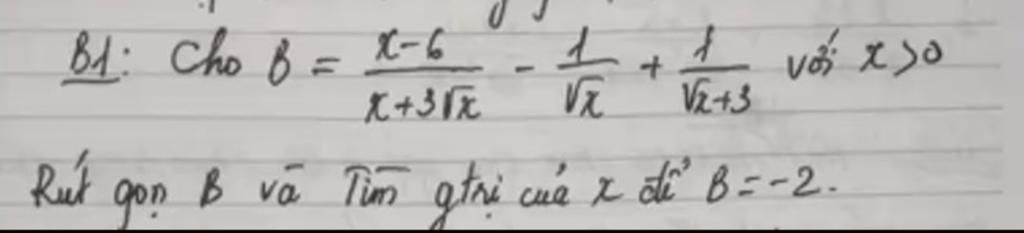 B1: Cho B = \frac{x-6}{x+3\sqrt{x}} - \frac{1}{\sqrt{x}} + \frac{1}{\sqrt{x}+3} với x>0
Rút gọn B và Tìm gtrị của x để B=-2.